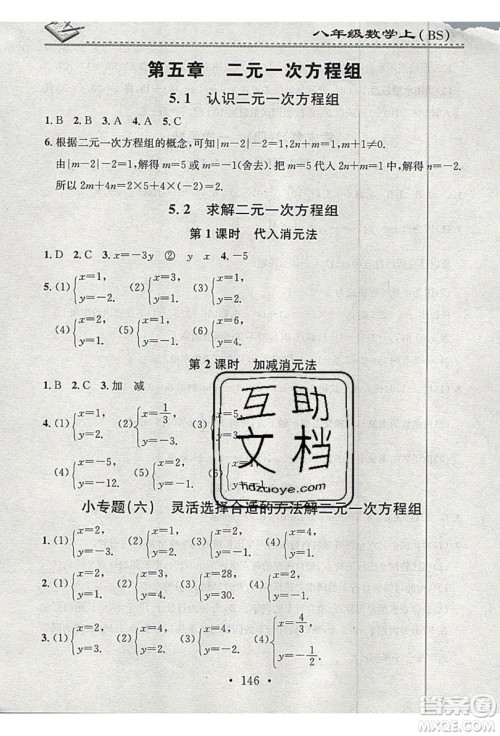 八年级数学上(BS)
第五章 二元一次方程组
5.1 认识二元一次方程组
1. B 2. B 3. A 4. A 5. C
6. 根据二元一次方程组的概念，可知|m−2|−2=1，2n+m=1，m+1≠0.
由|m−2|−2=1，解得 m=5 或 m=−1(舍去). 把 m=5 代入 2n+m=1，解得 n=−2.
所以 2m+4n=2×5+4×(−2)=2.
5.2 求解二元一次方程组
第 1 课时 代入消元法
1. D 2. C 3. x=−3y ② y x 4. −5
5. (1){x=1, y=−2. (2){x=2, y=−1. (3){x=1, y=2.
(4){x=2, y=2. (5){x=1, y=−2. (6){x=6, y=4.
第 2 课时 加减消元法
1. B 2. C 3. 加 减
4. (1){x=1, y=2. (2){x=2, y=−1. (3){x=1/3, y=−3. (4){x=−5,
互助
文档
hdzuoye.com
小专题(六) 灵活选择合适的方法解二元一次方程组
1. (1){x=2, y=4. (2){x=3, y=4. (3){x=28, y=30. (4)
y=−1.
2. (1){x=2, y=3. (2){x=4, y=−2. (3){x=4, (4){x=4/3,
· 146 ·
答案圈
MXQE.COM